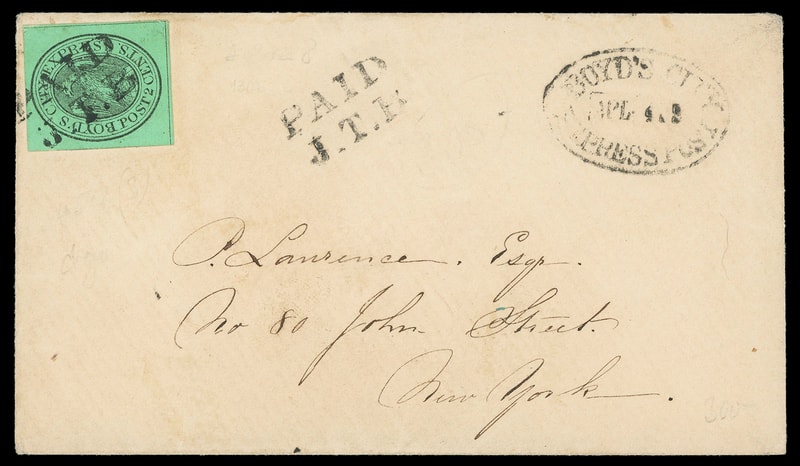 BOYD'S CITY EXPRESS POST 2 CENTS
PAID
J.T.B
PAID
J.T.B
BOYD'S CITY
APL
EXPRESS POST
P. Lawrence. Esqr.
No 80 John Street.
New York.